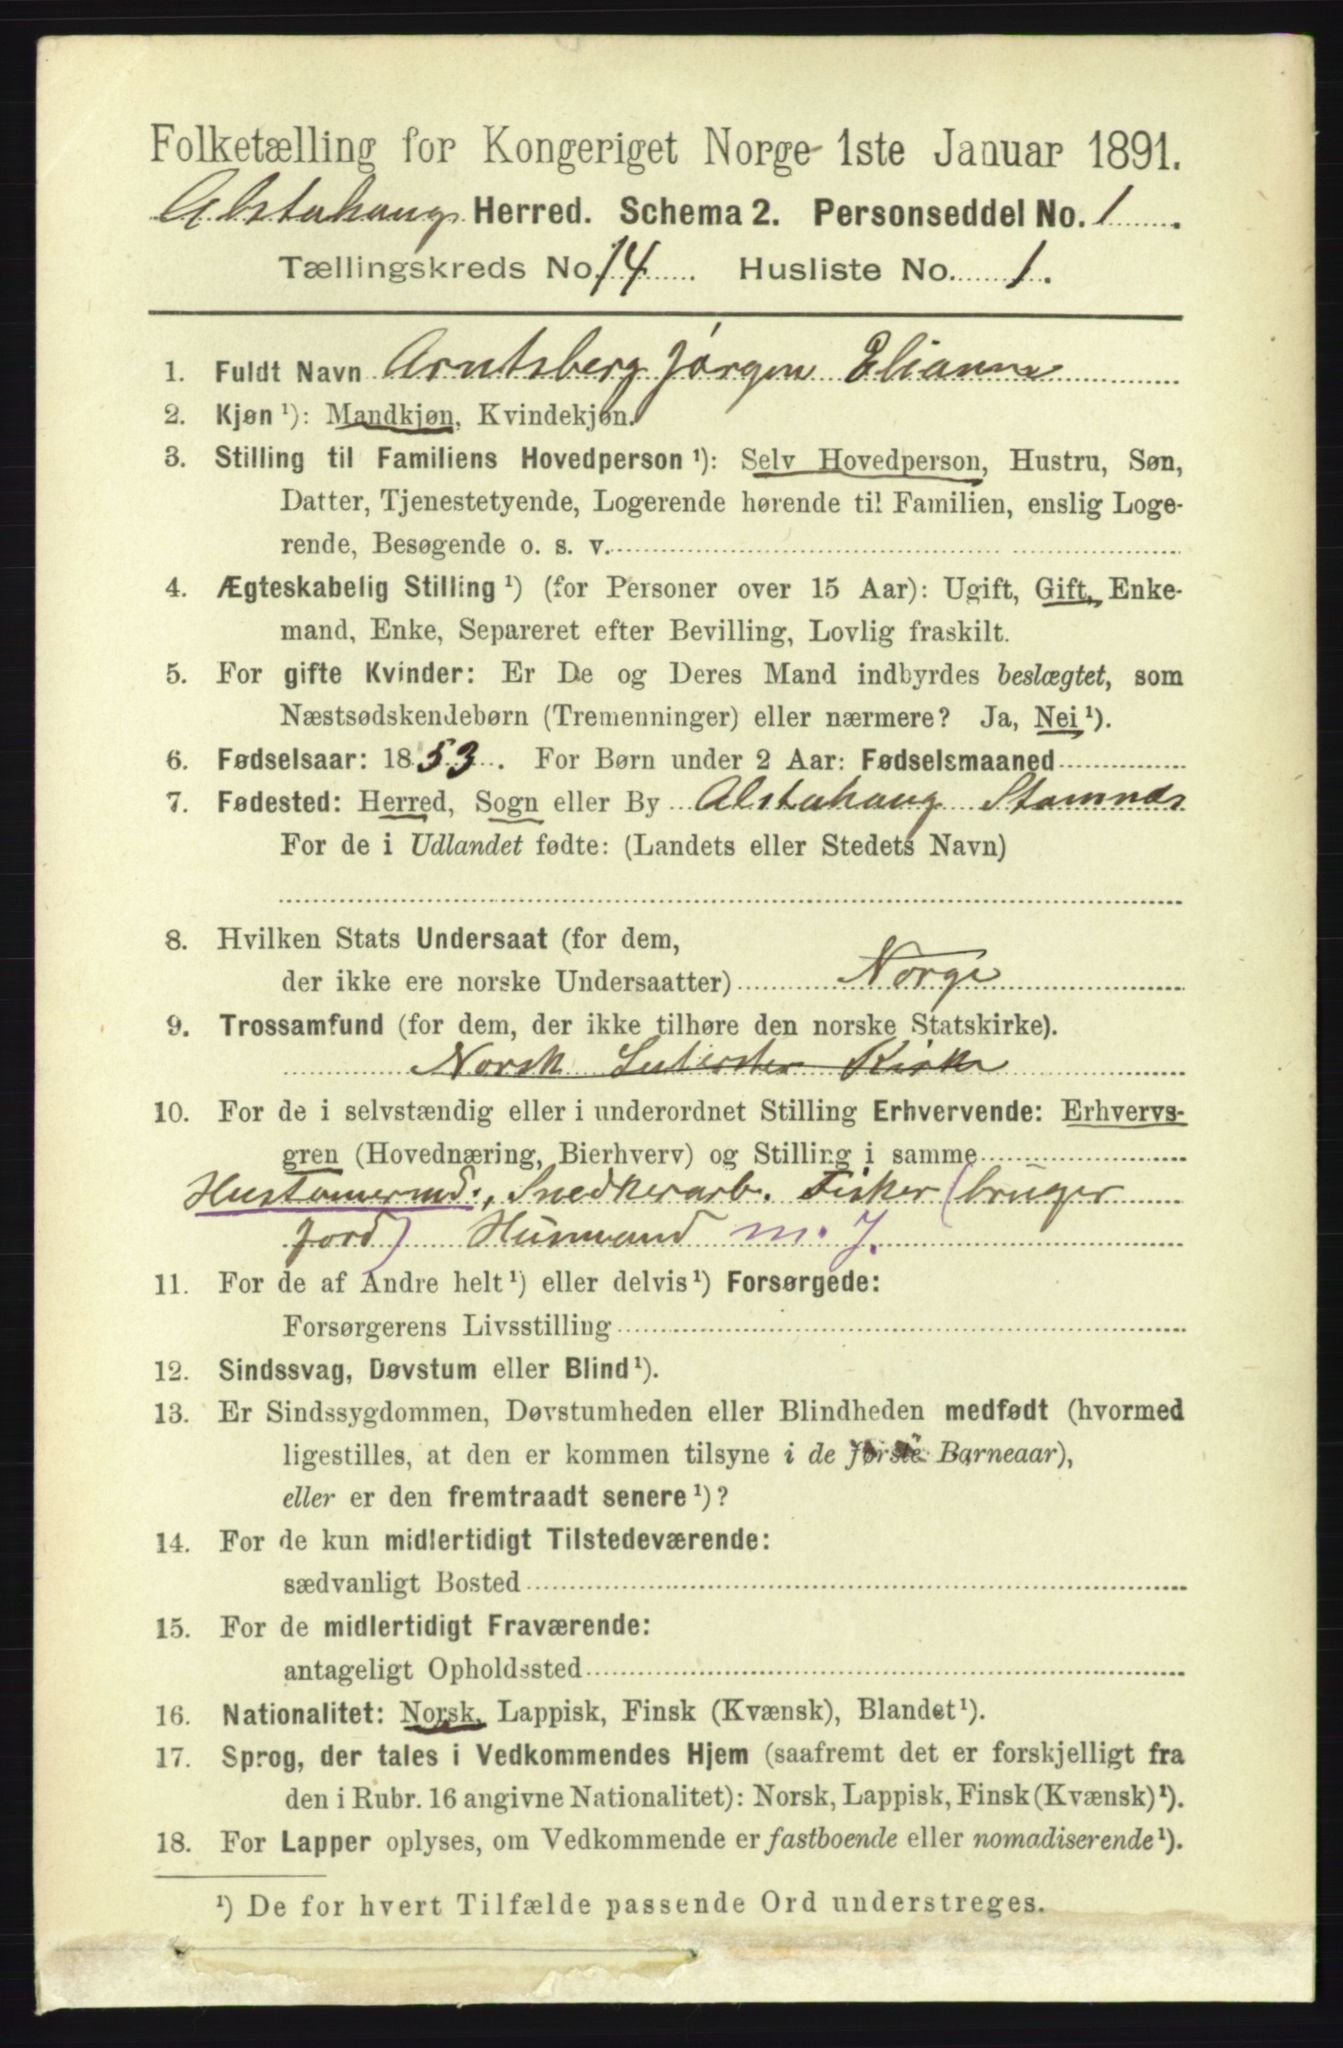 Folketælling for Kongeriget Norge 1ste Januar 1891.
Alstahaug Herred. Schema 2. Personseddel No. 1.
Tællingskreds No. 14 Husliste No. 1.
1. Fuldt Navn Arntsberg Jørgen Elianne
2. Kjøn ¹): Mandkjøn, Kvindekjøn.
3. Stilling til Familiens Hovedperson ¹): Selv Hovedperson, Hustru, Søn,
Datter, Tjenestetyende, Logerende hørende til Familien, enslig Loge-
rende, Besøgende o. s. v.
4. Ægteskabelig Stilling ¹) (for Personer over 15 Aar): Ugift, Gift, Enke-
mand, Enke, Separeret efter Bevilling, Lovlig fraskilt.
5. For gifte Kvinder: Er De og Deres Mand indbyrdes beslægtet, som
Næstsødskendebørn (Tremenninger) eller nærmere? Ja, Nei ¹).
6. Fødselsaar: 1853. For Børn under 2 Aar: Fødselsmaaned
7. Fødested: Herred, Sogn eller By Alstahaug Stamnæs
For de i Udlandet fødte: (Landets eller Stedets Navn)
8. Hvilken Stats Undersaat (for dem,
der ikke ere norske Undersaatter) Norge
9. Trossamfund (for dem, der ikke tilhøre den norske Statskirke).
Norsk Kirke
10. For de i selvstændig eller i underordnet Stilling Erhvervende: Erhvervs-
gren (Hovednæring, Bierhverv) og Stilling i samme
Snedkerarb. Fisker (bruger
jord) Husmand m. J.
11. For de af Andre helt ¹) eller delvis ¹) Forsørgede:
Forsørgerens Livsstilling
12. Sindssvag, Døvstum eller Blind ¹).
13. Er Sindssygdommen, Døvstumheden eller Blindheden medfødt (hvormed
ligestilles, at den er kommen tilsyne i de første Barneaar),
eller er den fremtraadt senere ¹)?
14. For de kun midlertidigt Tilstedeværende:
sædvanligt Bosted
15. For de midlertidigt Fraværende:
antageligt Opholdssted
16. Nationalitet: Norsk, Lappisk, Finsk (Kvænsk), Blandet ¹).
17. Sprog, der tales i Vedkommendes Hjem (saafremt det er forskjelligt fra
den i Rubr. 16 angivne Nationalitet): Norsk, Lappisk, Finsk (Kvænsk) ¹).
18. For Lapper oplyses, om Vedkommende er fastboende eller nomadiserende ¹).
¹) De for hvert Tilfælde passende Ord understreges.